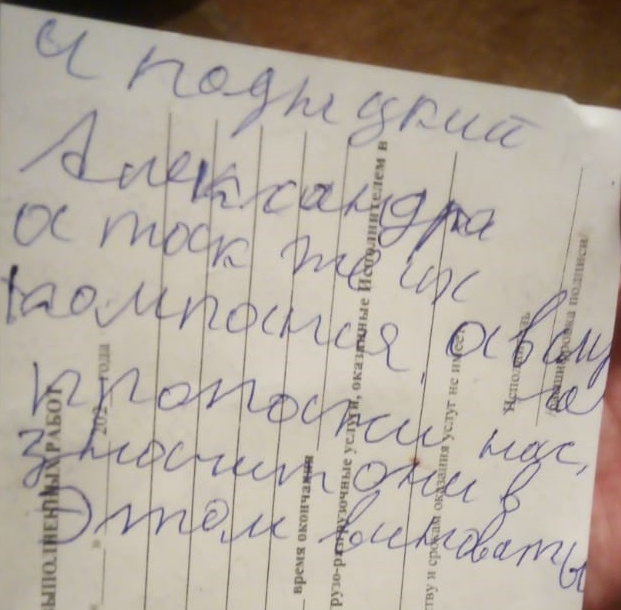 и
Александра
а так же их
компания,
пропали нас,
значит они в
этом виноваты
ВЫПОЛНЕННЫХ РАБОТ
« » 202 года
время окончания
грузо-разгрузочные услуги, оказанные Исполнителем в
ству и срокам оказания услуг не имеет.
Исполнитель
/расшифровка подписи/